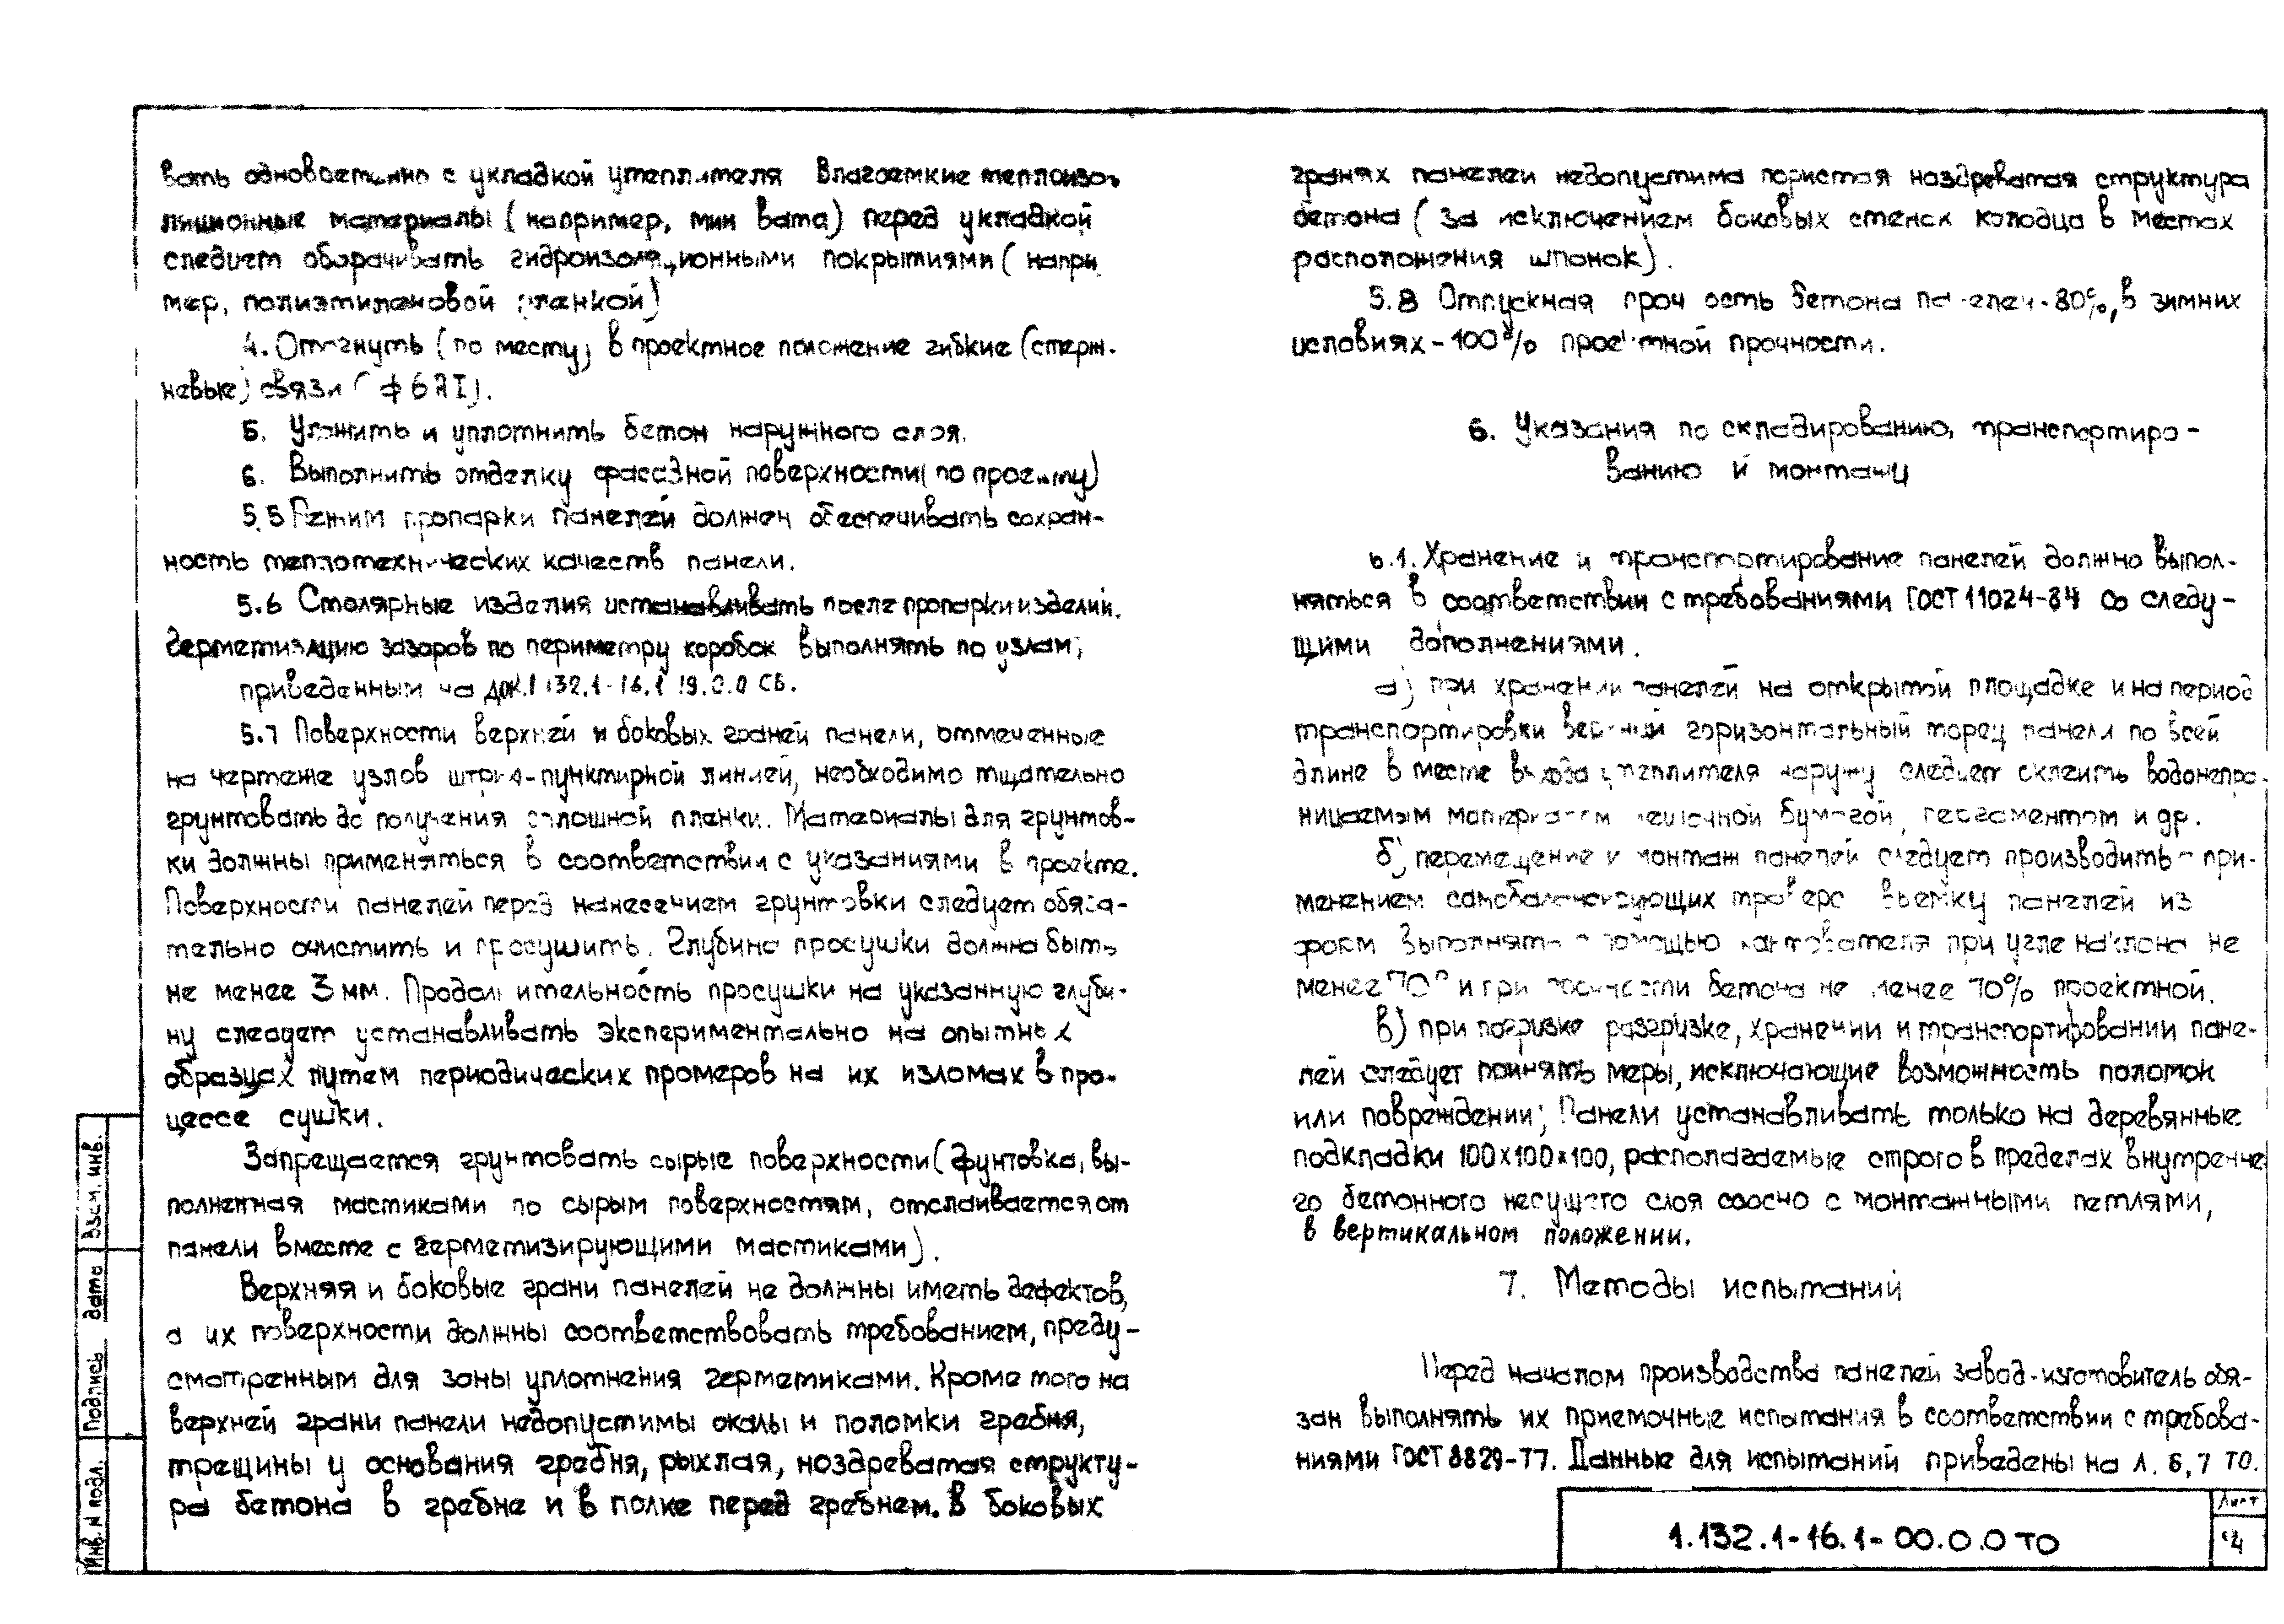 вать одновременно с укладкой утеплителя Влагоемкие теплоизо-
ляционные материалы (например, мин вата) перед укладкой
следует оборачивать гидроизоляционными покрытиями (напри
мер, полиэтиленовой пленкой)
4. Отогнуть (по месту) в проектное положение гибкие (стерж-
невые) связи (ф 6АI).
5. Уложить и уплотнить бетон наружного слоя.
6. Выполнить отделку фасадной поверхности (по проекту)
5.5 Режим пропарки панелей должен обеспечивать сохран-
ность теплотехнических качеств панели.
5.6 Столярные изделия устанавливать после пропарки изделий.
Герметизацию зазоров по периметру коробок выполнять по узлам,
приведенным на док.1.132.1-16.1 19.0.0 СБ.
5.7 Поверхности верхней и боковых граней панели, отмеченные
на чертеже узлов штрих-пунктирной линией, необходимо тщательно
грунтовать до получения сплошной пленки. Материалы для грунтов-
ки должны применяться в соответствии с указаниями в проекте.
Поверхности панелей перед нанесением грунтовки следует обяза-
тельно очистить и просушить. Глубина просушки должна быть
не менее 3 мм. Продолжительность просушки на указанную глуби-
ну следует устанавливать экспериментально на опытных
образцах путем периодических промеров на их изломах в про-
цессе сушки.
Запрещается грунтовать сырые поверхности (грунтовка, вы-
полненная мастиками по сырым поверхностям, отслаивается от
панели вместе с герметизирующими мастиками).
Верхняя и боковые грани панелей не должны иметь дефектов,
а их поверхности должны соответствовать требованием, преду-
смотренным для зоны уплотнения герметиками. Кроме того на
верхней грани панели недопустимы околы и поломки гребня,
трещины у основания гребня, рыхлая, ноздреватая структу-
ра бетона в гребне и в полке перед гребнем. В боковых
гранях панелей недопустима пористая ноздреватая структура
бетона (за исключением боковых стенок колодца в местах
расположения шпонок).
5.8 Отпускная прочность бетона панелей - 80%, в зимних
условиях - 100% проектной прочности.
6. Указания по складированию, транспортиро-
ванию и монтажу
6.1. Хранение и транспортирование панелей должно выпол-
няться в соответствии с требованиями ГОСТ 11024-84 со следу-
щими дополнениями.
а) при хранении панелей на открытой площадке и на период
транспортировки верхний горизонтальный торец панели по всей
длине в месте выхода утеплителя наружу следует склеить водонепро-
ницаемым материалом мешочной бумагой, пергаментом и др.
б) перемещение и монтаж панелей следует производить с при-
менением самобалансирующих траверс выемку панелей из
форм выполнять с помощью кантователя при угле наклона не
менее 70° и при прочности бетона не менее 70% проектной.
в) при погрузке разгрузке, хранении и транспортировании пане-
лей следует принять меры, исключающие возможность поломок
или повреждении; Панели устанавливать только на деревянные
подкладки 100×100×100, располагаемые строго в пределах внутренне
го бетонного несущего слоя соосно с монтажными петлями,
в вертикальном положении.
7. Методы испытаний
Перед началом производства панелей завод-изготовитель обя-
зан выполнять их приемочные испытания в соответствии с требова-
ниями ГОСТ 8829-77. Данные для испытаний приведены на л. 6, 7 ТО.
1.132.1-16.1-00.0.0 ТО
Лист
4
Взам. инв.
Подпись дата
Инв. N подл.